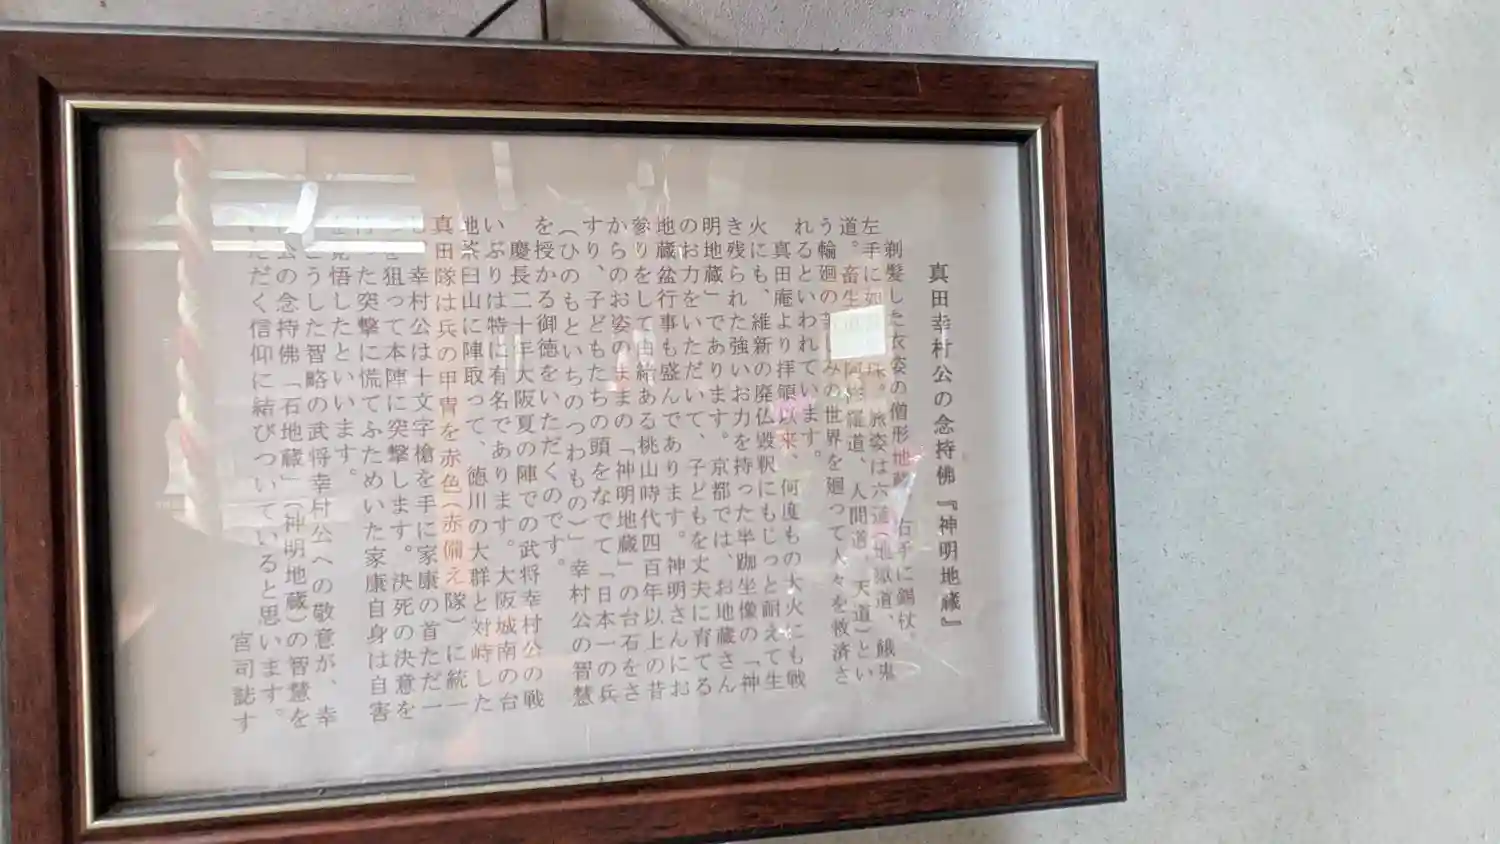 真田幸村公の念持佛『神明地蔵』
剃髪した衣姿の僧形地蔵 右手に錫杖、
左手に如 珠。旅姿は六道(地獄道、餓鬼
道。畜生 阿修羅道、人間道、天道)とい
う輪廻の苦しみの世界を廻って人々を救済さ
れるといわれています。
真田庵より拝領以来、何度もの大火にも戦
火にも、維新の廃仏毀釈にもじっと耐えて生
き残られた強いお力を持った半跏坐像の「神
明地蔵」であります。京都では、お地蔵さん
のお力をいただいて、子どもを丈夫に育てる
地蔵盆行事も盛んであります。神明さんにお
参りをして由緒ある桃山時代四百年以上の昔
からのお姿のままの「神明地蔵」の台石をさ
すり、子どもたちの頭をなでて「日本一の兵
(ひのもといちのつわもの)」幸村公の智慧
を授かる御徳をいただくのです。
慶長二十年大阪夏の陣での武将幸村公の戦
いぶりは特に有名であります。大阪城南の台
地茶臼山に陣取って、徳川の大群と対峙した
真田隊は兵の甲冑を赤色(赤備え隊)に統一
し、幸村公は十文字槍を手に家康の首ただ一
つを狙って本陣に突撃します。決死の決意を
った突撃に慌てふためいた家康自身は自害
を覚悟したといいます。
こうした智略の武将幸村公への敬意が、幸
村公の念持佛「石地蔵」(神明地蔵)の智慧を
いただく信仰に結びついていると思います。
宮司誌す